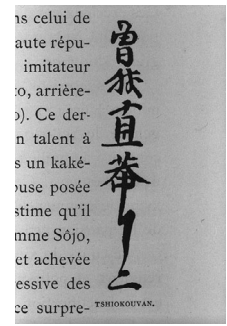 ns celui de
aute répu-
imitateur
to, arrière-
o). Ce der-
n talent à
s un kaké-
ouse posée
stime qu'il
mme Sôjo,
et achevée
essive des
ce surpre-
曾我直菴
TSHIOKOUVAN.